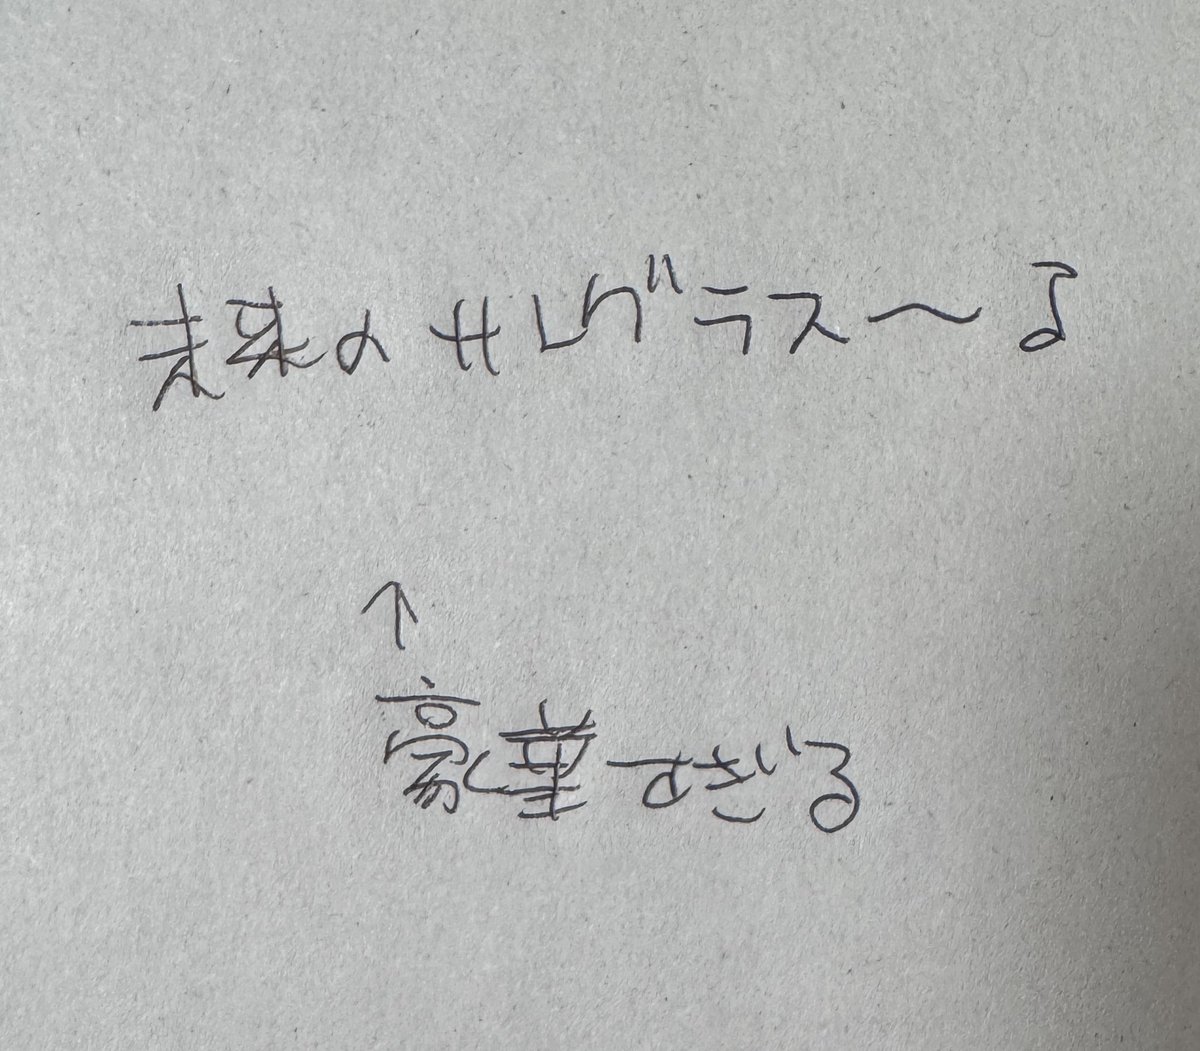 未来のサングラス〜♪
↑
豪華すぎる